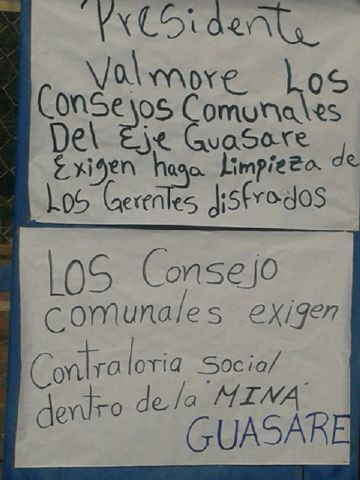 Presidente
Valmore Los
Consejos Comunales
Del Eje Guasare
Exigen haga Limpieza de
Los Gerentes disfrados
LOS Consejo
comunales exigen
Contraloria social
dentro de la "MINA"
GUASARE